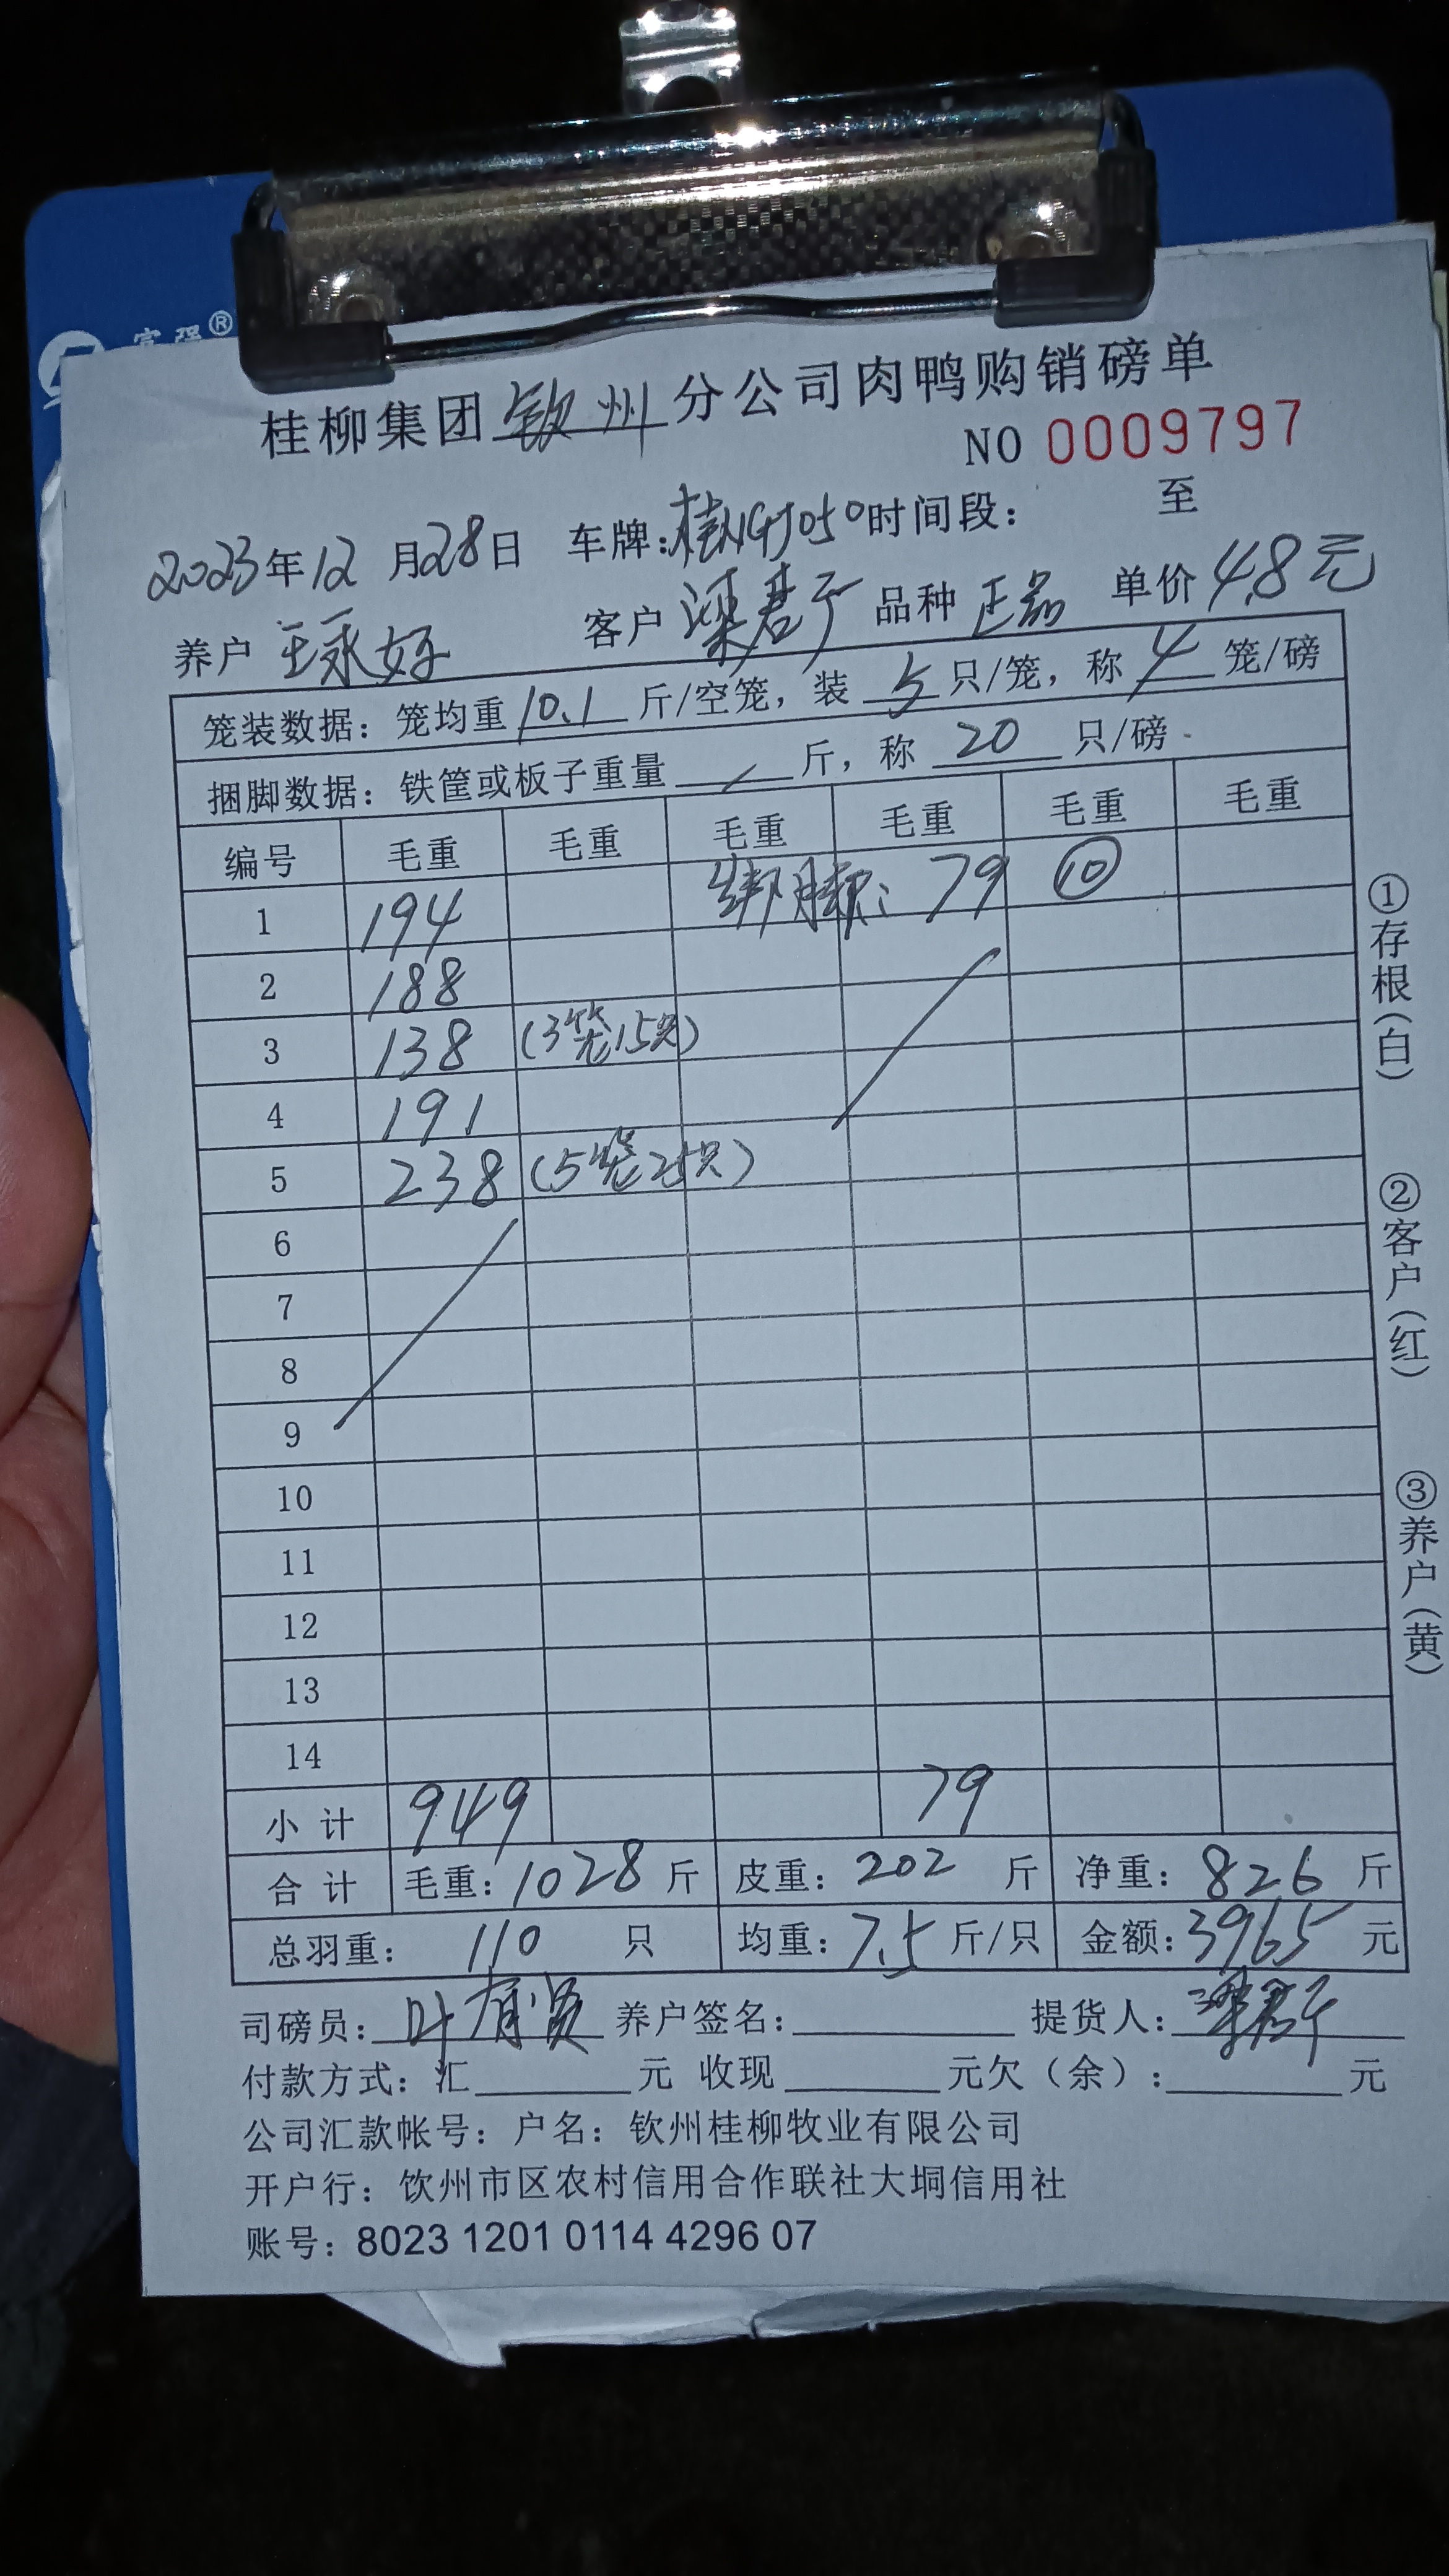 富强®
桂柳集团钦州分公司肉鸭购销磅单
NO 0009797
2023年12月28日 车牌:桂NGJ050时间段: 至
养户 王永好 客户 梁君于 品种 正品 单价 4.8元
笼装数据: 笼均重10.1斤/空笼, 装5只/笼, 称4笼/磅
捆脚数据: 铁筐或板子重量/斤, 称20只/磅
编号 毛重 毛重 毛重 毛重 毛重 毛重
1 194 绑脚: 79 ⑩
2 188
3 138 (3笼15只)
4 191
5 238 (5笼25只)
6
7
8
9
10
11
12
13
14
小计 949 79
合计 毛重: 1028斤 皮重: 202斤 净重: 826斤
总羽重: 110只 均重: 7.5斤/只 金额: 3965元
司磅员: 叶有贤 养户签名: 提货人: 梁君于
付款方式: 汇 元 收现 元欠(余): 元
公司汇款帐号: 户名: 钦州桂柳牧业有限公司
开户行: 钦州市区农村信用合作联社大垌信用社
账号: 8023 1201 0114 4296 07
①存根(白)
②客户(红)
③养户(黄)